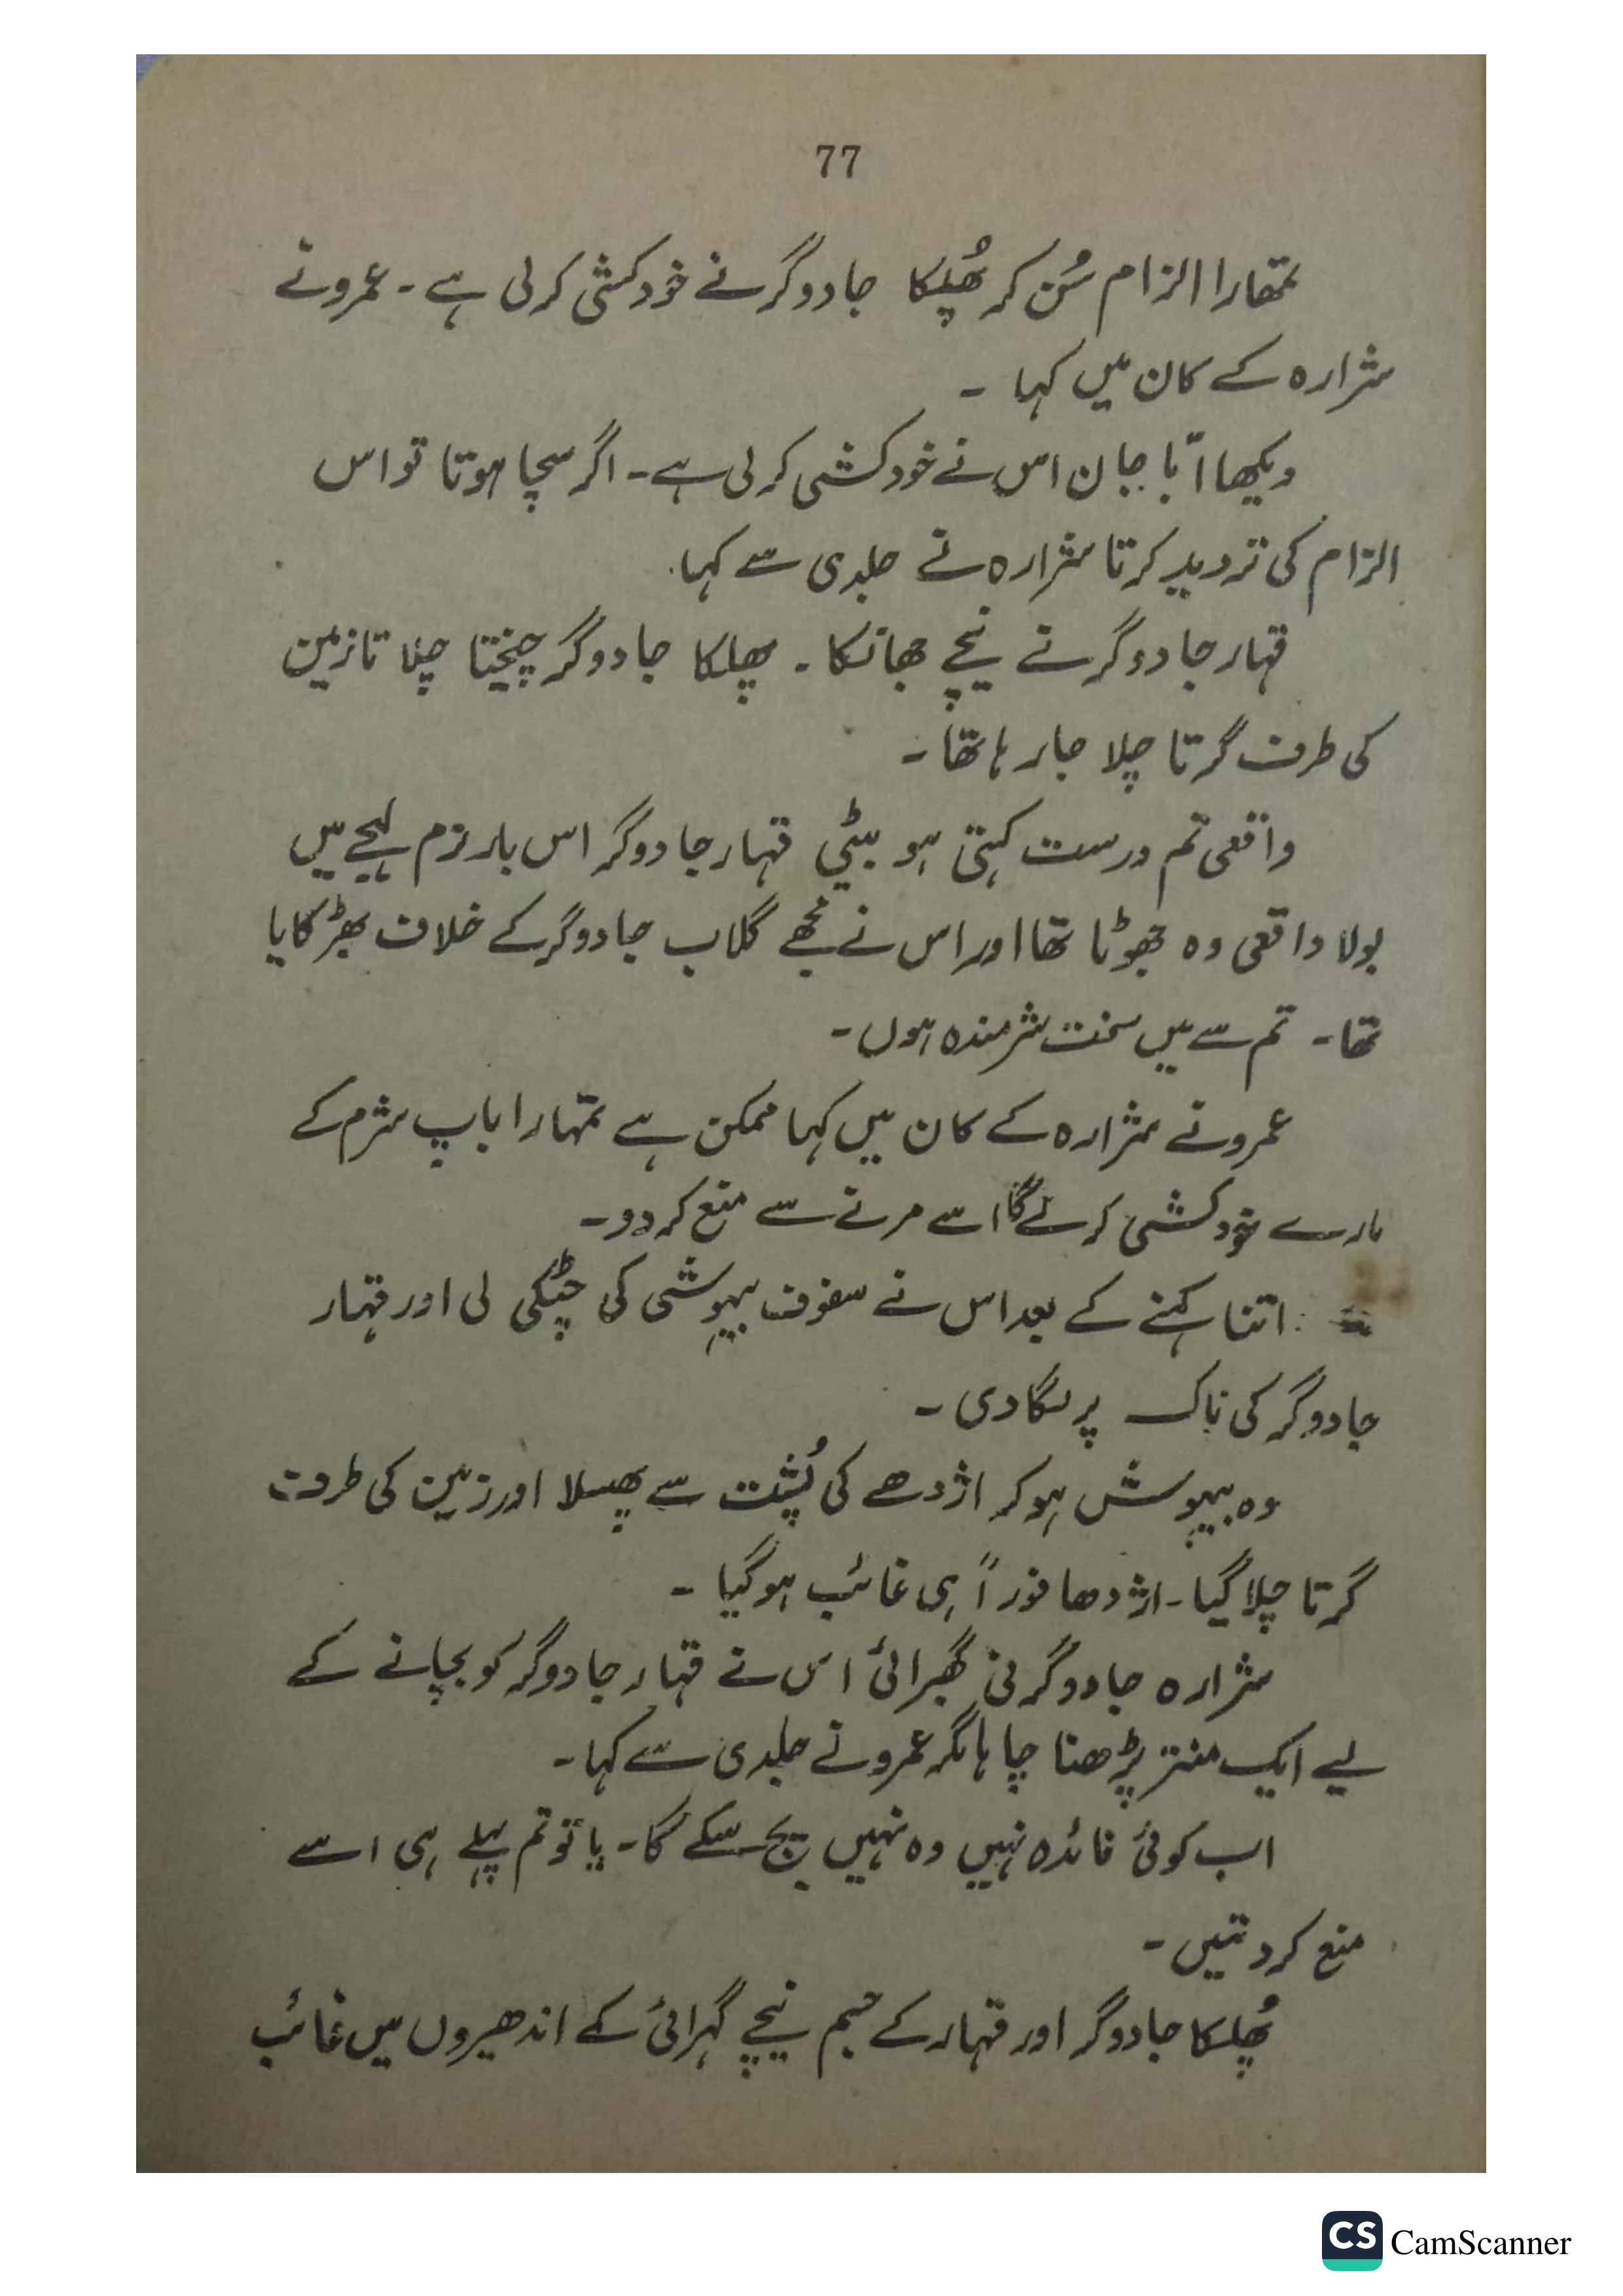 77
تمھارا الزام سُن کر پُھلکا جادوگر نے خودکشی کر لی ہے۔ عمرو نے
شرارہ کے کان میں کہا ۔
دیکھا ابّا جان اس نے خودکشی کر لی ہے۔ اگر سچا ہوتا تو اس
الزام کی تردید کرتا شرارہ نے جلدی سے کہا.
قہار جادوگر نے نیچے جھانکا ۔ پھلکا جادوگر چیختا چلاتا زمین
کی طرف گرتا چلا جا رہا تھا ۔
واقعی تم درست کہتی ہو بیٹی قہار جادوگر اس بار نرم لہجے میں
بولا واقعی وہ جھوٹا تھا اور اس نے مجھے گلاب جادوگر کے خلاف بھڑکایا
تھا ۔ تم سے میں سخت شرمندہ ہوں ۔
عمرو نے شرارہ کے کان میں کہا ممکن ہے تمہارا باپ شرم کے
مارے خودکشی کرلے گا اسے مرنے سے منع کر دو ۔
اتنا کہنے کے بعد اس نے سفوف بیہوشی کی چٹکی لی اور قہار
جادوگر کی ناک پر لگا دی ۔
وہ بیہوش ہو کر اژدھے کی پُشت سے پھسلا اور زمین کی طرف
گرتا چلا گیا ۔ اژدھا فوراً ہی غائب ہوگیا ۔
شرارہ جادوگرنی گھبرائی اس نے قہار جادوگر کو بچانے کے
لیے ایک منتر پڑھنا چاہا مگر عمرو نے جلدی سے کہا ۔
اب کوئی فائدہ نہیں وہ نہیں بچ سکے گا ۔ یا تو تم پہلے ہی اسے
منع کر دیتیں ۔
پُھلکا جادوگر اور قہار کے جسم نیچے گہرائی کے اندھیروں میں غائب
CS CamScanner